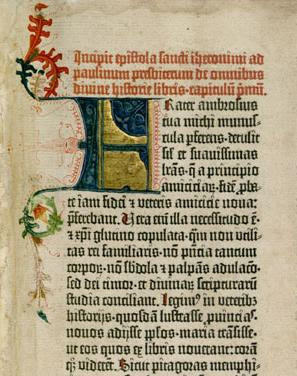 Incipit epistola sancti iheronimi ad
paulinum presbiterum de omnibus
divine historie libris. capitulū pmū.
Frater ambrosius
tua michi munus-
cula pferens. detulit
sił et suavissimas
lrās. q a principio
amiciciar. fidē pba-
te iam fidei et veteris amicicie nova:
pferebant. Vera enī illa necessitudo ē.
et xpi glutino copulata. qm non utili-
tas rei familiaris. nō pncia tantum
corpor. nō sbdola et palpās adulacō.
sed dei timor. et divinar scripturarū
studia conciliant. Legim in veterib
historijs. quosdā lustrasse puincias.
novos adijsse pplos. maria trāsisse.
ut eos quos ex libris noverant: corā
q viderēt. Sicut pitagoras memphi-